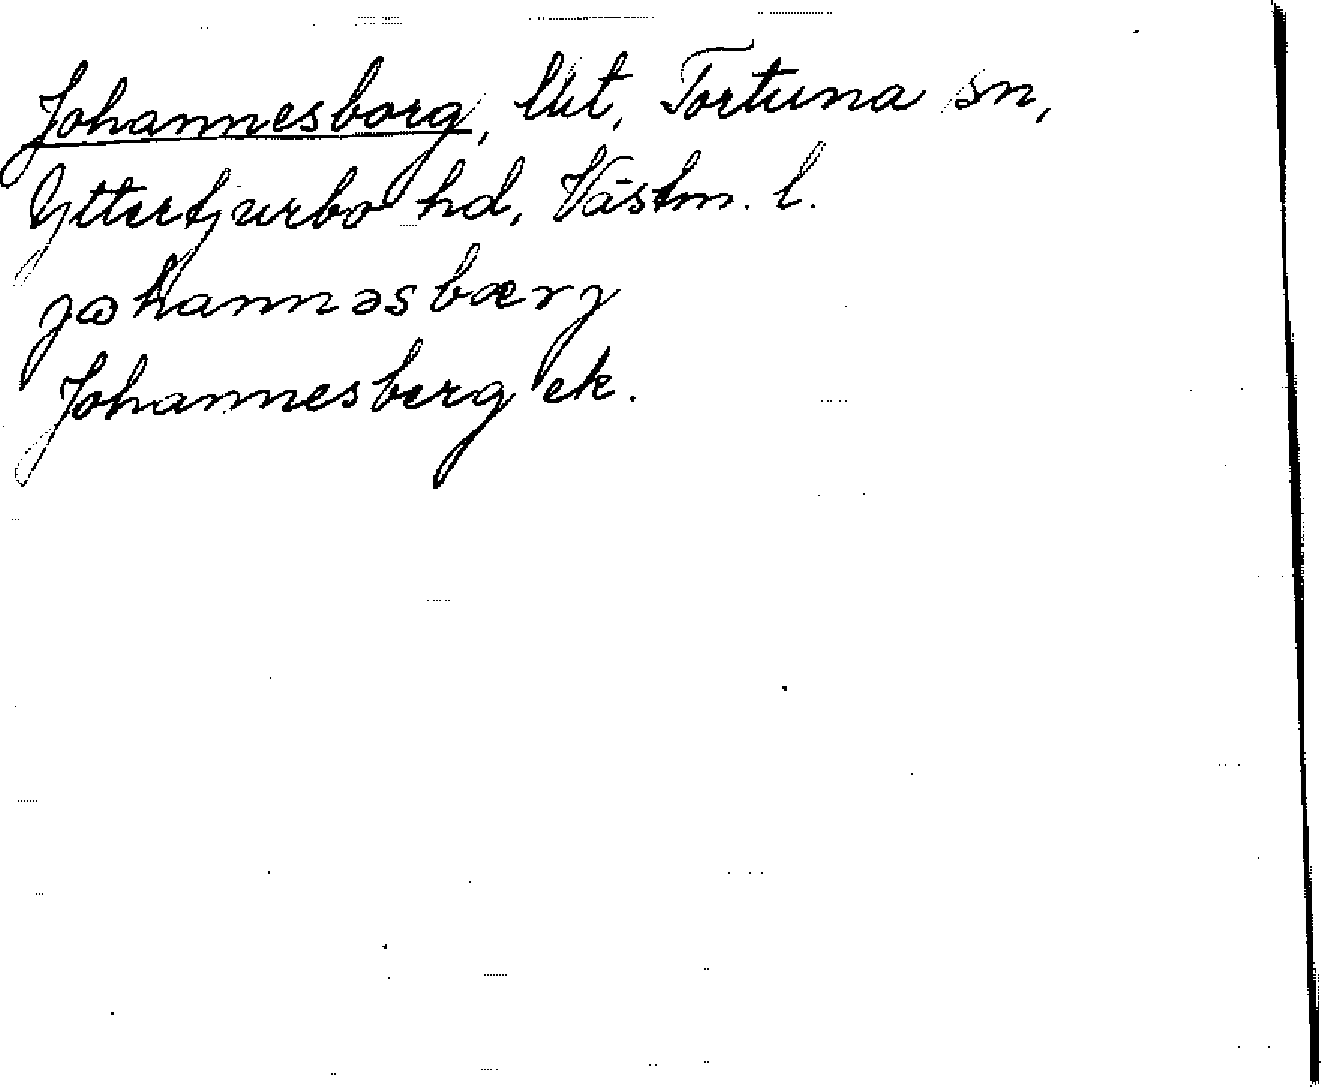 Johannesborg, lht, Tortuna sn,
Yttertjurbo hd, Västm. l.
jɷhannəsbærj
Johannesberg ek.